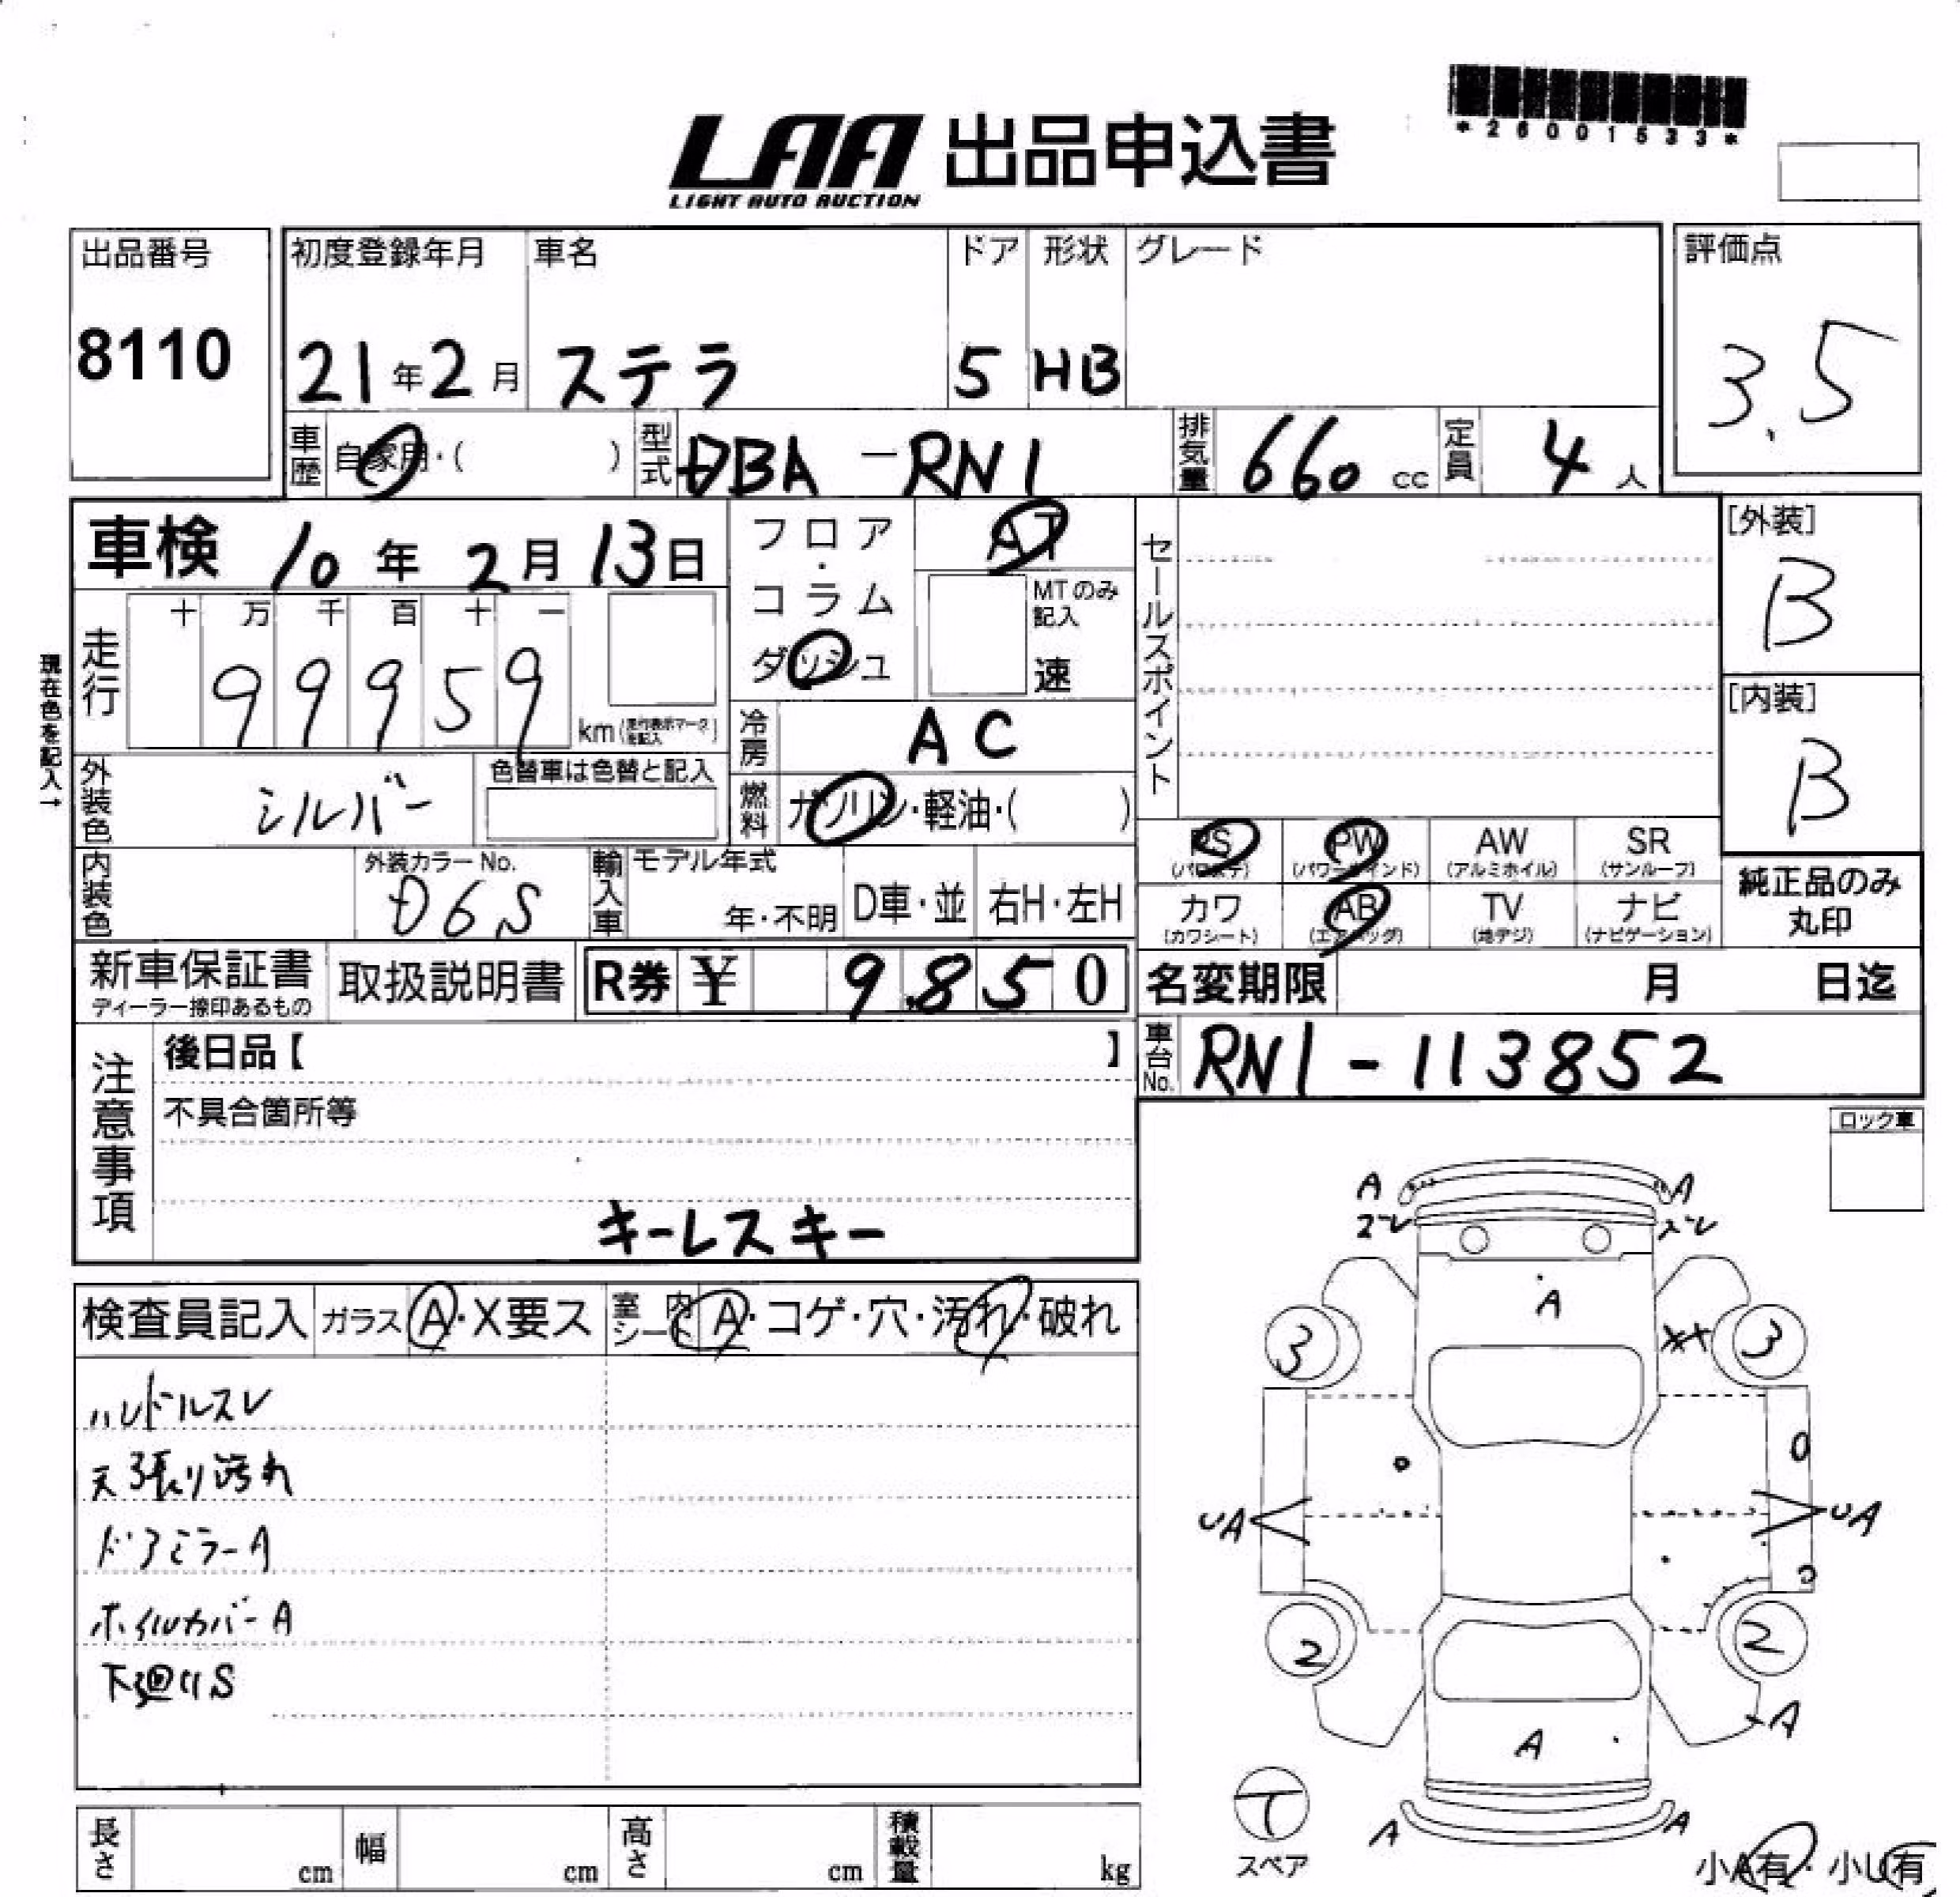 *26001533*
LAA 出品申込書
LIGHT AUTO AUCTION
出品番号 初度登録年月 車名 ドア 形状 グレード 評価点
8110 21年2月 ステラ 5 HB 3.5
車歴 自家用・( ) 型式 DBA-RN1 排気量 660 cc 定員 4人
車検 10年2月13日 フロア・コラム ダッシュ AT
MTのみ記入 速
セールスポイント
[外装]
B
[内装]
B
走行 十 万 千 百 十 一
99959 km(走行表示マークを記入)
現在色を記入→
冷房 AC
外装色 シルバー 色替車は色替と記入
燃料 ガソリン・軽油・( )
PS (パワステ) PW (パワーウインド) AW (アルミホイル) SR (サンルーフ)
カワ (カワシート) AB (エアバッグ) TV (地デジ) ナビ (ナビゲーション)
純正品のみ丸印
内装色 外装カラーNo. D6S 輸入車 モデル年式 年・不明 D車・並 右H・左H
新車保証書 ディーラー捺印あるもの 取扱説明書 R券 ¥ 9,850 名変期限 月 日迄
車台No. RN1-113852
注意事項 後日品【 】
不具合箇所等
キーレスキー
ロック車
検査員記入 ガラス A・X要ス 室内シート A・コゲ・穴・汚れ・破れ
ハンドルスレ
天張り汚れ
ドアミラーA
ホイルカバーA
下廻りS
A A
A
3 XX 3
UA UA
2 2
A
A
A A
T
スペア
小A有・小U有
長さ cm 幅 cm 高さ cm 積載量 kg